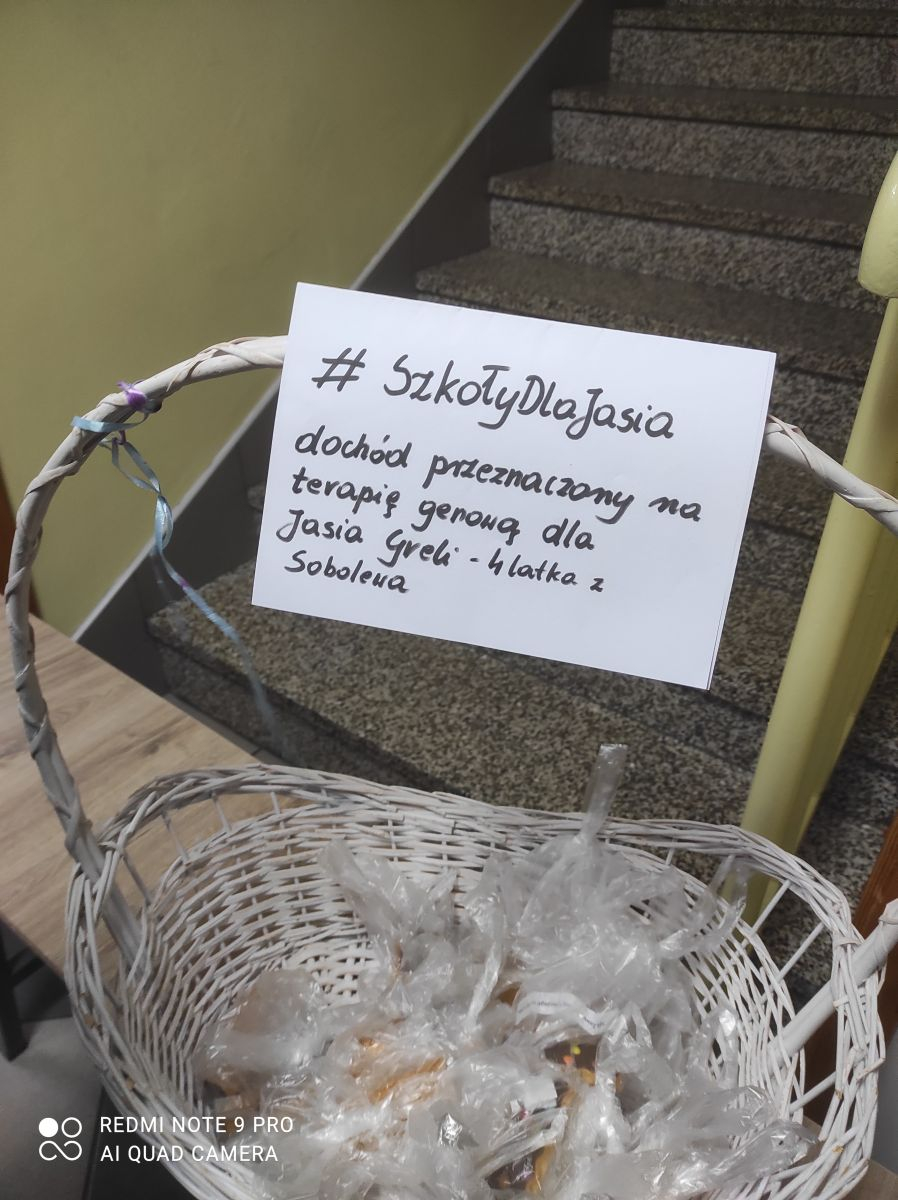 # SzkołyDlaJasia
dochód przeznaczony na
terapię genową dla
Jasia Greli - 4latka z
Sobolewa
REDMI NOTE 9 PRO
AI QUAD CAMERA